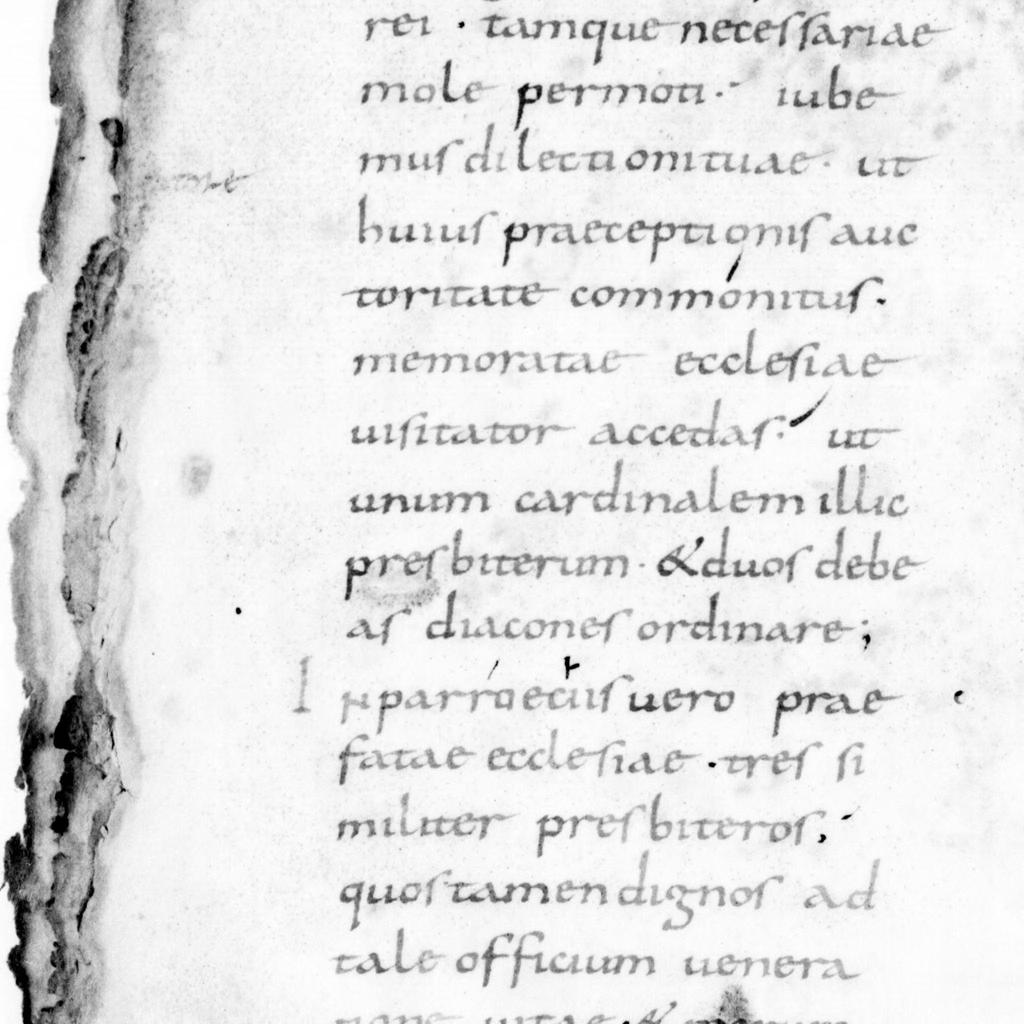 rei · tamque necessariae
mole permoti · iube
mus dilectioni tuae · ut
huius praeceptionis auc
toritate commonitus ·
memoratae ecclesiae
uisitator accedas · ut
unum cardinalem illic
presbiterum · & duos debe
as diacones ordinare ;
In parroeciis uero prae
fatae ecclesiae · tres si
militer presbiteros ·
quos tamen dignos ad
tale officium uenera
tione uitae · &